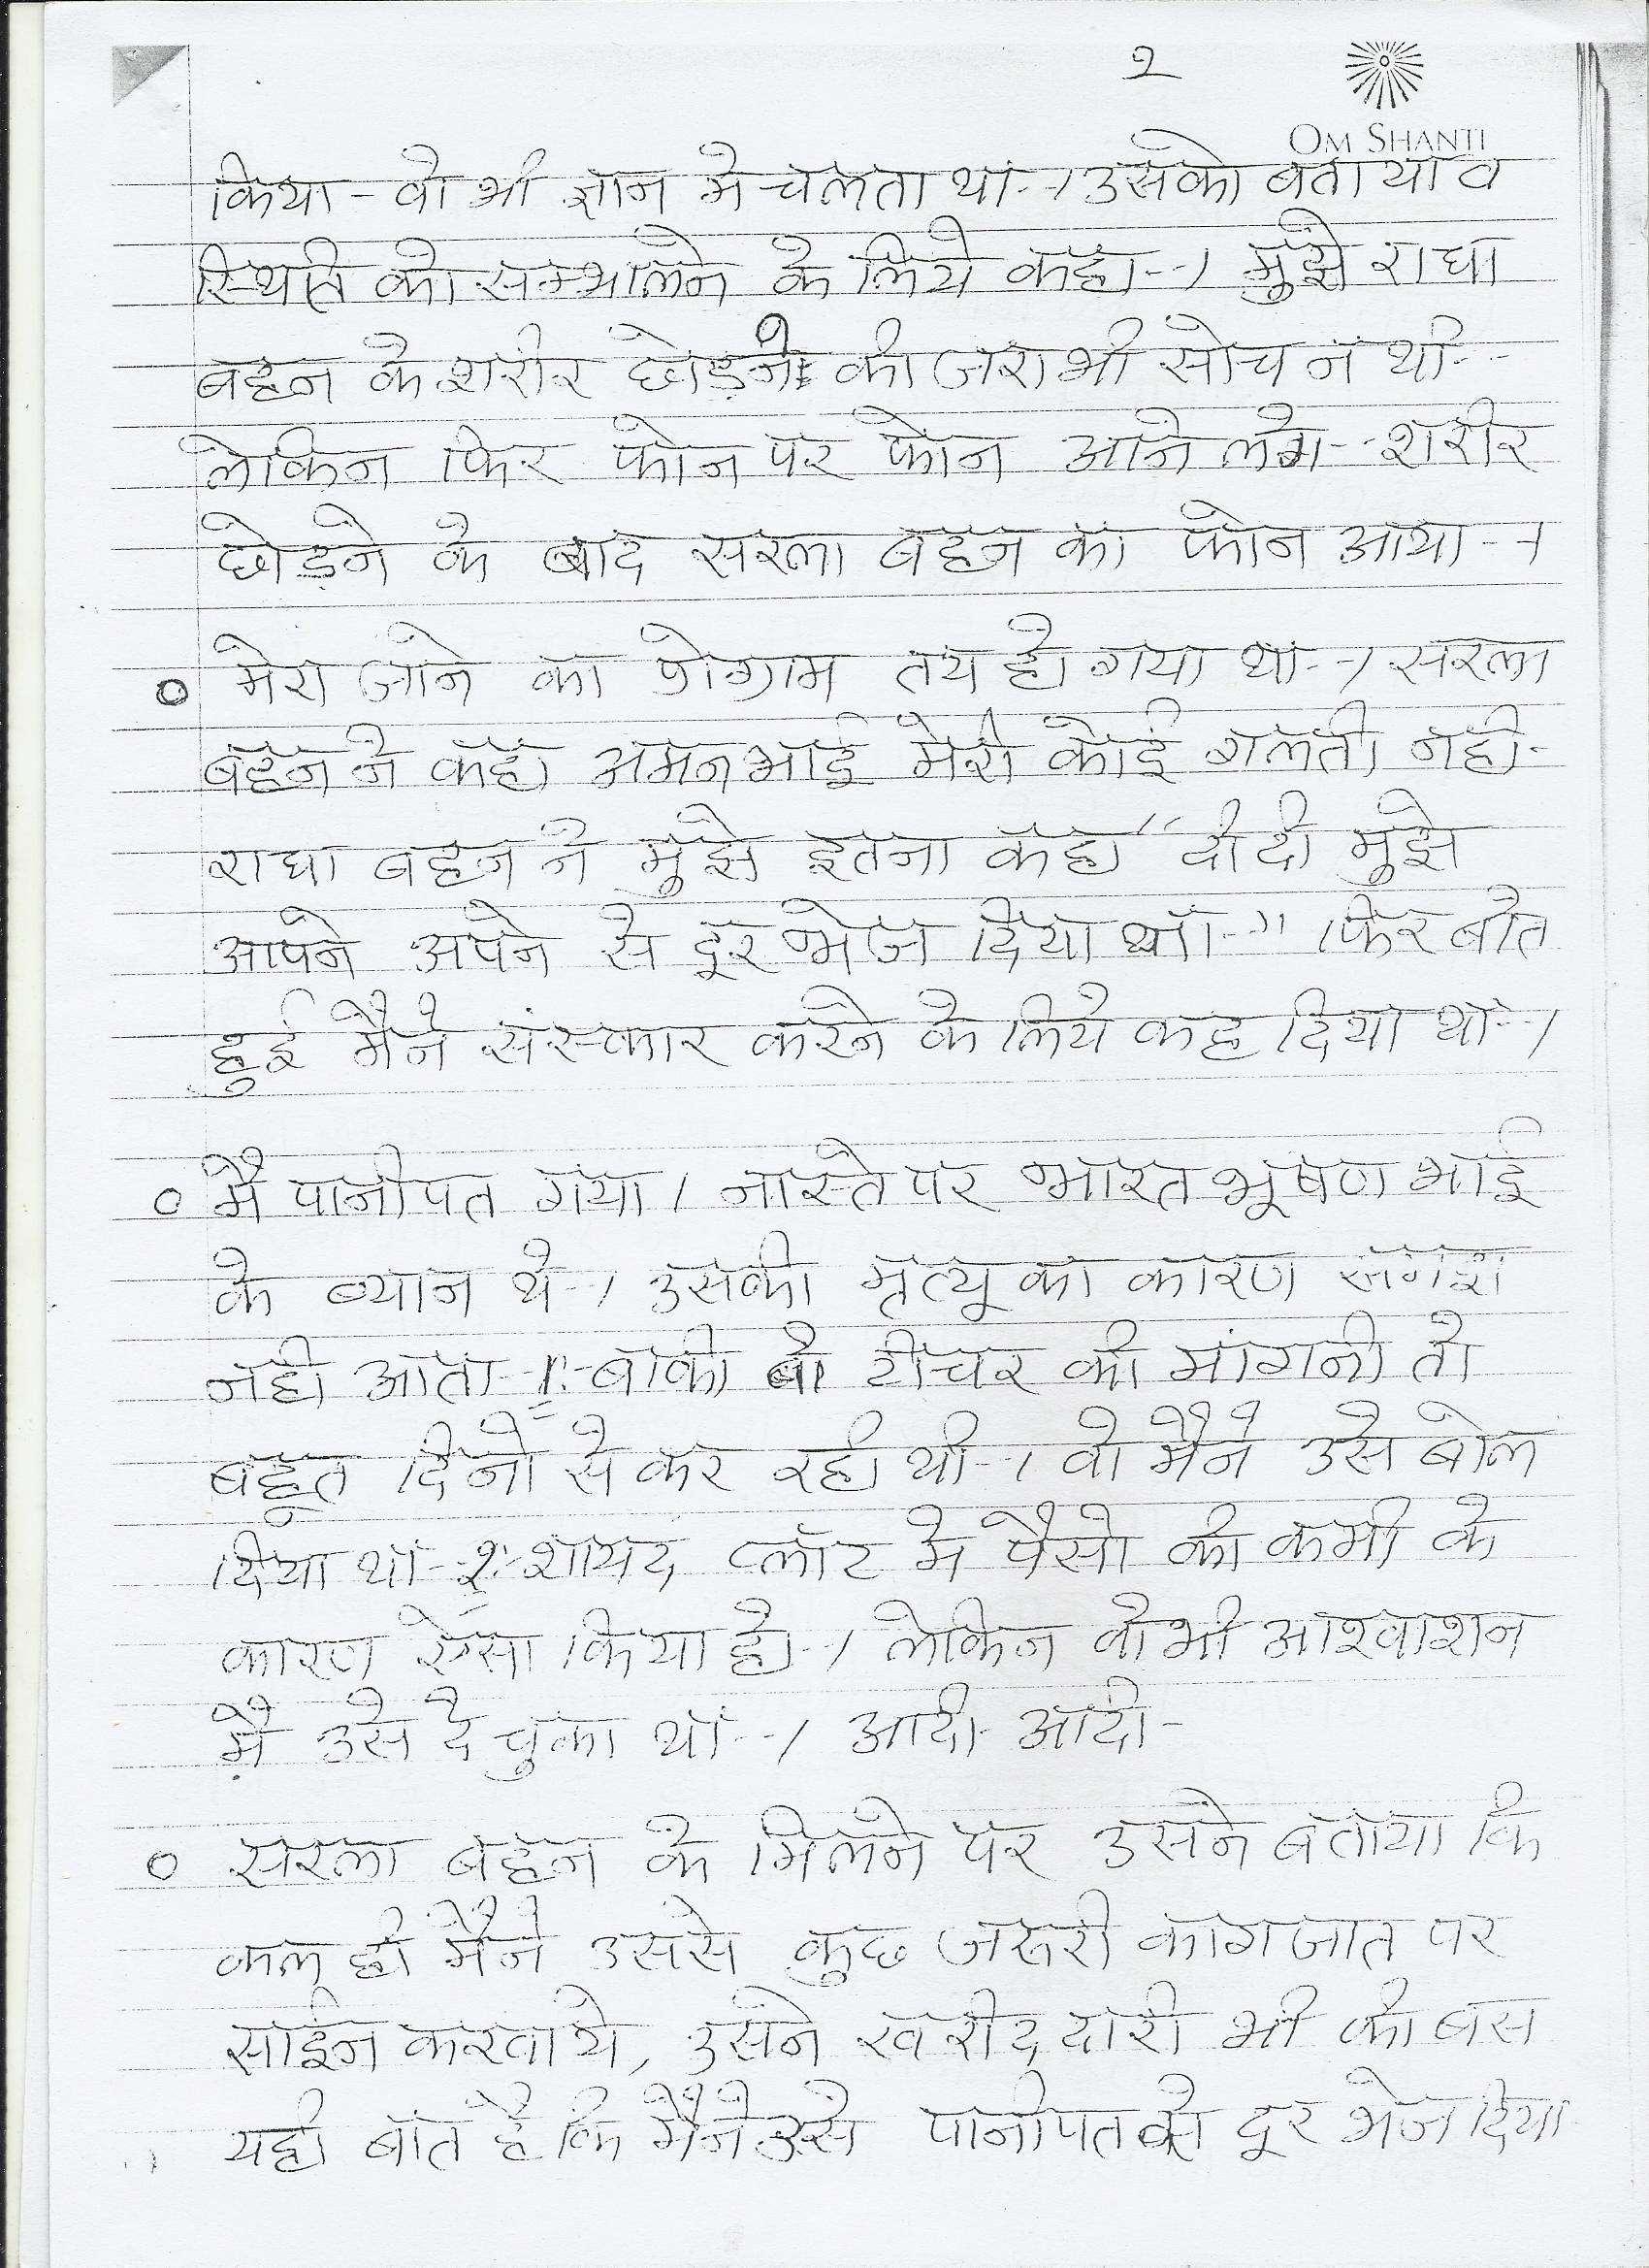 2
OM SHANTI
किया - वो भी ज्ञान मे चलता था--। उसको बताया व
स्थिति को सम्भालने के लिये कहा--। मुझे राधा
बहन के शरीर छोड़ने की जरा भी सोच न थी--
लेकिन फिर फोन पर फोन आने लगे-- शरीर
छोड़ने के बाद सरला बहन का फोन आया--।
० मेरा जाने का प्रोग्राम तय हो गया था--। सरला
बहन ने कहा अमन भाई मेरी कोई गलती नही-
राधा बहन ने मुझे इतना कहा "दीदी मुझे
आपने अपने से दूर भेज दिया था--" फिर बात
हुई मैने संस्कार करने के लिये कह दिया था--।
० मै पानीपत गया। नास्ते पर भारत भूषण भाई
के ब्यान थे-। उसकी मृत्यू का कारण समझ
नही आता-1:- बाकी वो टीचर की मांगनी तो
बहूत दिनो से कर रही थी-। वो मैने उसे बोल
दिया था-2:- शायद प्लॉट मे पैसो की कमी के
कारण ऐसा किया हो-। लेकिन वो भी आश्वाशन
मै उसे दे चुका था--। आदी- आदी-
० सरला बहन के मिलने पर उसने बताया कि
कल ही मैने उससे कुछ जरूरी कागजात पर
साईन करवाये, उसने खरीददारी भी की बस
यही बात है कि मैने उसे पानीपत से दूर भेज दिया